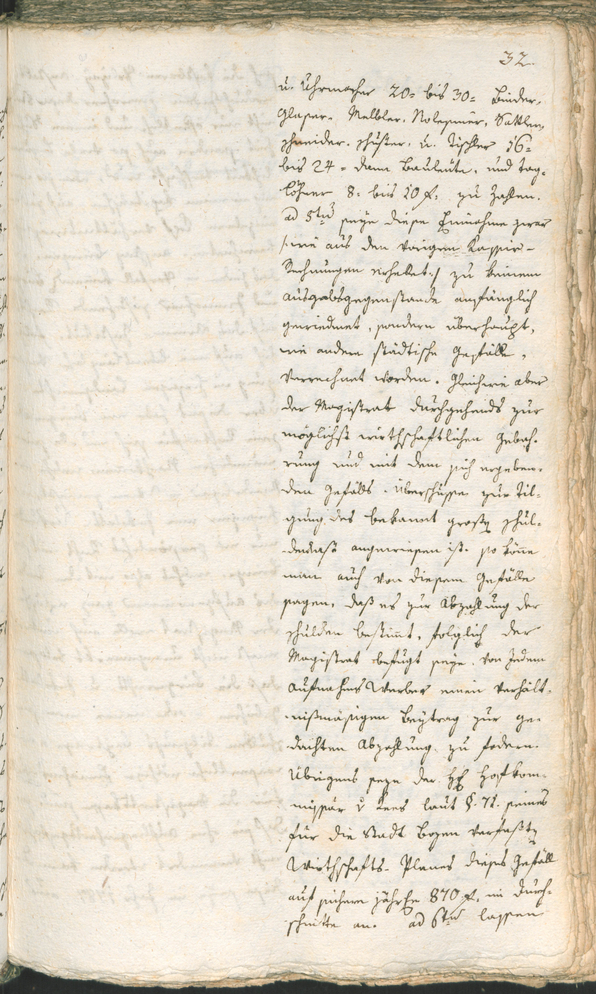 32.
u. Uhrmacher 20= bis 30= Binder,
Glaser, Melbler, Sattler,
Schneider, Schuster, u. Tischler 16=
bis 24 = dann Bauleute, und Tag-
löhner 8= bis 10 f. zu zahlen.
ad 5tum seye diese Einnahme zwar
/: wie aus den vorigen Kassier-
Rechnungen erhellet :/ zu keinem
Ausgabsgegenstande anfänglich
gewidmet, sondern überhaupt,
wie andere städtische Gefälle,
verrechnet worden. Gleichwie aber
der Magistrat durchgehends zur
möglichst wirthschaftlichen Gebah-
rung und mit dem sich ergeben-
den Gefälls-Überschusse zur Til-
gung des bekannt großen Schul-
denlasts angewiesen ist, so könne
man auch von diesem Gefälle
sagen, daß es zur Abzahlung der
Schulden bestimt, folglich der
Magistrat befugt seye, von jedem
Aufnahms Werber einen verhält-
nißmäsigen Beytrag zur ge-
dachten Abzahlung zu fodern.
Übrigens seye der Hofkom-
missär v. laut §. 71. seines
für die Stadt Bozen verfaßten
Wirthschafts-Planes dieses Gefäll
auf sichere jährle 870 f. im Durch-
schnitte an. ad 6tum lassen